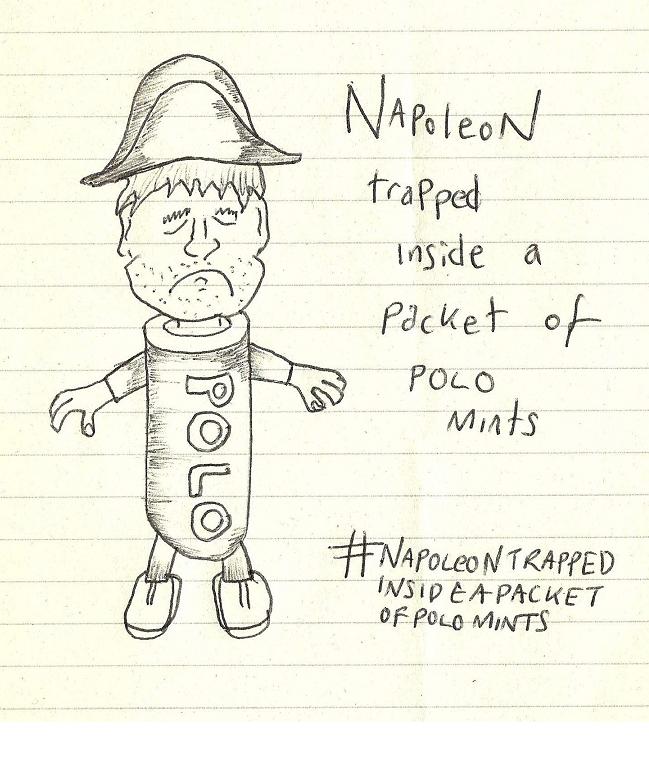 NAPoleoN
trapped
inside a
packet of
POLO
Mints
POLO
#NAPOLEONTRAPPED
INSIDEAPACKET
OFPOLOMINTS